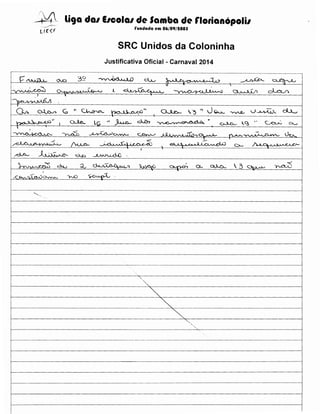 Liga das Escolas de Samba de Florianópolis
Fundada em 06/09/2002
LIESF
SRC Unidos da Coloninha
Justificativa Oficial - Carnaval 2014
Frente ao 3º módulo de julgamento, esta agre
miação apresentou 1 destaque masculino antes das
As alas 6 "Chora palhaço", ala 13 "Vou me vestir de
palhaço", ala 16 "lua dos namorados" ala 19 "Cai a
máscara não estavam com elementos que permitiam
claramente sua identificação, a sequencia
da leitura do enredo.
Inserção de 2 destaques logo após a ala 19 que não
constavam no